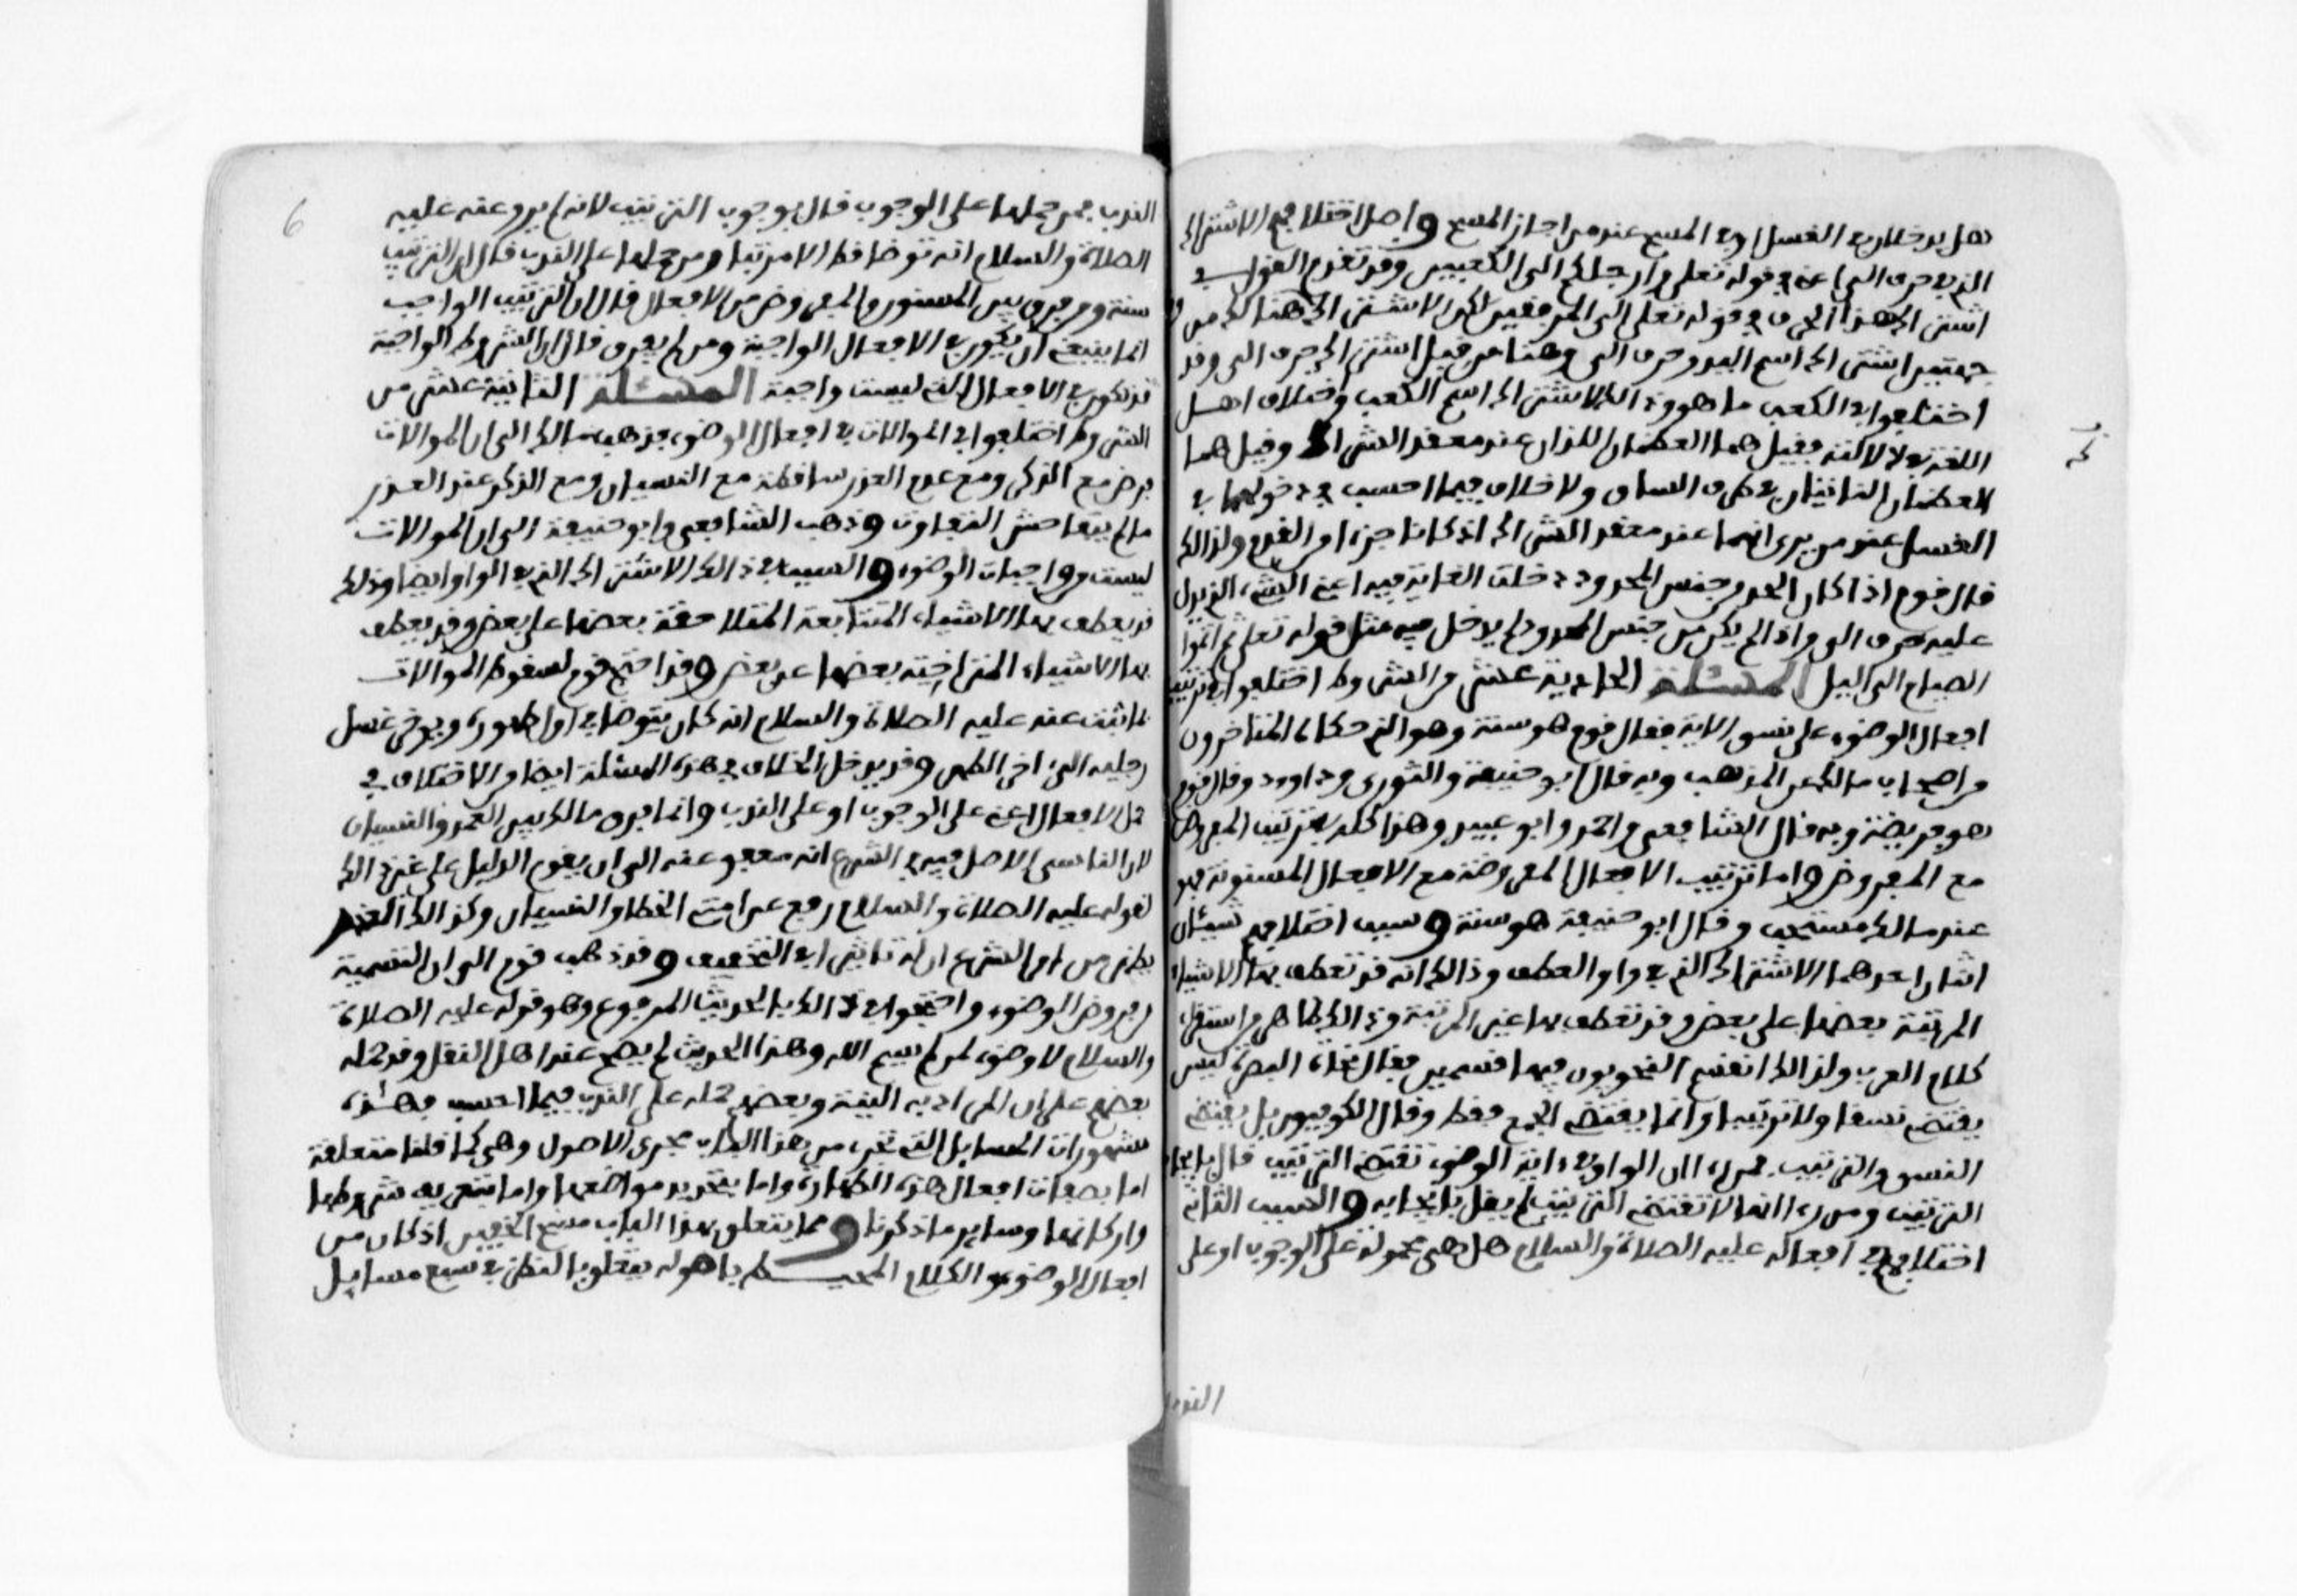 هل يدخلان في الغسل او في المسح عند من اجاز المسح واصل اختلافهم الاشتراك
الذي في حرف الى اعني في قوله تعلى وارجلكم الى الكعبين وقد تقدم القول في
اشتراك هذا الحرف في قوله تعلى الى المرفقين لكن الاشتراك هنالك من
جهتين اشتراك اسم اليد وحرف الى وهنا من قبل اشتراك حرف الى وقد
اختلفوا في الكعب ما هو وذالك لاشتراك اسم الكعب واختلاف اهل
اللغة في دلالاته فقيل هما العظمان اللذان عند معقد الشراك وقيل هما
العظمان الناتئان في طرف الساق ولا خلاف فيما احسب في دخولهما في
الغسل عند من يرى انهما عند معقد الشراك اذ كانا جزءا من القدم ولذالك
قال قوم اذا كان الحد من جنس المحدود دخلت الغاية فيه اعني الشيء الذي يدل
عليه حرف الى واذا لم يكن من جنس المحدود لم يدخل فيه مثل قوله تعلى ثم اتموا
الصيام الى اليل المسئلة الحادية عشر من الشروط اختلفوا في ترتيب
افعال الوضوء على نسق الاية فقال قوم هو سنة وهو الذي حكاه المتاخرون
من اصحاب مالك عن المذهب وبه قال ابو حنيفة والثوري وداوود وقال قوم
هو فريضة وبه قال الشافعي واحمد وابو عبيد وهذا كله في ترتيب المفروض
مع المفروض واما ترتيب الافعال المفروضة مع الافعال المسنونة فهو
عند مالك مستحب وقال ابو حنيفة هو سنة وسبب اختلافهم شيئان
اثنان احدهما الاشتراك الذي في واو العطف وذالك انه قد تعطف بها الاشياء
المرتبة بعضها على بعض وقد تعطف بها غير المرتبة وذالك ظاهر من استقراء
كلام العرب ولذالك انقسم النحويون فيها قسمين فقال نحاة البصرة ليس
يقتضي نسقا ولا ترتيبا وانما يقتضي الجمع فقط وقال الكوفيون بل يقتضي
النسق والترتيب فمن راى ان الواو في اية الوضوء تقتضي الترتيب قال بايجاب
الترتيب ومن راى انها لا تقتضي الترتيب لم يقل بايجابه والسبب الثاني
اختلافهم في افعاله عليه الصلاة والسلام هل هي محمولة على الوجوب او على
الندب
الندب فمن حملها على الوجوب قال بوجوب الترتيب لانه لم يرو عنه عليه
الصلاة والسلام انه توضا قط الا مرتبا ومن حملها على الندب قال ان الترتيب
سنة ومن فرق بين المسنون والمفروض من الافعال قال ان الترتيب الواجب
انما ينبغي ان يكون في الافعال الواجبة ومن لم يفرق قال ان الشروط الواجبة
قد تكون في الافعال التي ليست واجبة المسئلة الثانية عشر من
الشروط اختلفوا في الموالات في افعال الوضوء فذهب مالك الى ان الموالات
فرض مع الذكر ومع عدم العذر ساقطة مع النسيان ومع الذكر عند العذر
ما لم يتفاحش التفاوت وذهب الشافعي وابو حنيفة الى ان الموالات
ليست من واجبات الوضوء والسبب في ذالك الاشتراك الذي في الواو ايضا وذلك
قد يعطف بها الاشياء المتتابعة المتلاحقة بعضها على بعض وقد يعطف
بها الاشياء المتراخية بعضها عن بعض وقد احتج قوم لسقوط الموالات
بما ثبت عنه عليه الصلاة والسلام انه كان يتوضا في اول طهوره ويوخر غسل
رجليه الى اخر الطهر وقد يدخل الخلاف في هذه المسئلة ايضا في الاختلاف في
حمل الافعال اعني على الوجوب او على الندب وانما فرق مالك بين العمد والنسيان
لان الناسي الاصل فيه في الشرع انه معفو عنه الى ان يقوم الدليل على غير ذالك
لقوله عليه الصلاة والسلام رفع عن امتي الخطا والنسيان وكذالك العذر
يظهر من امر الشرع ان له تاثيرا في التخفيف وقد ذهب قوم الى ان التسمية
من فروض الوضوء واحتجوا في ذالك بالحديث المرفوع وهو قوله عليه الصلاة
والسلام لا وضوء لمن لم يسم الله وهذا الحديث لم يصح عند اهل النقل وقد حمله
بعضهم على ان المراد به النية وبعضهم حمله على الندب فيما احسب فهذه
مشهورات المسايل التي تجري من هذا الباب مجرى الاصول وهي كما قلنا متعلقة
اما بصفات افعال هذه الطهارة واما بتحديد مواضعها واما بتعريف شروطها
واركانها وساير ما ذكرنا ومما يتعلق بهذا الباب مسح الخفين اذ كان من
افعال الوضوء والكلام المحيط باصوله يتعلق بالنظر في سبع مسايل
6